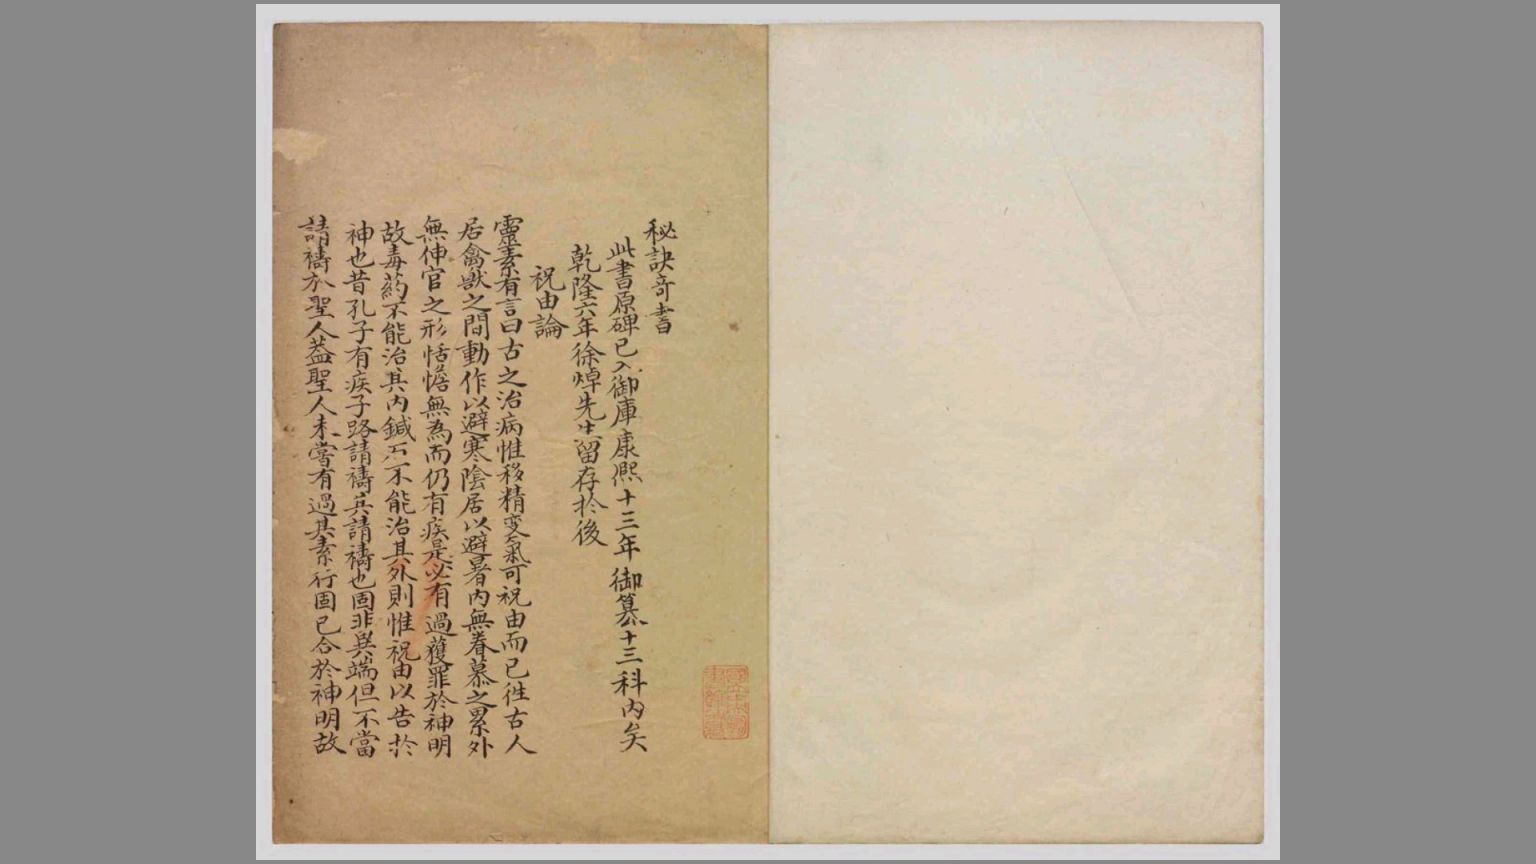 秘訣奇書
此書原碑已入御庫康熙十三年御篡十三科內矣
乾隆六年徐焯先生留存扵後
祝由論
靈素有言曰古之治病惟移精变氣可祝由而已徃古人
居禽獸之間動作以避寒陰居以避暑內無眷慕之累外
無伸官之形恬憺無為而仍有疾是必有過獲罪於神明
故毒葯不能治其內鍼石不能治其外則惟祝由以告扵
神也昔孔子有疾子路請禱兵請禱也固非異端但不當
請禱於聖人葢聖人未嘗有過其素行固已合於神明故